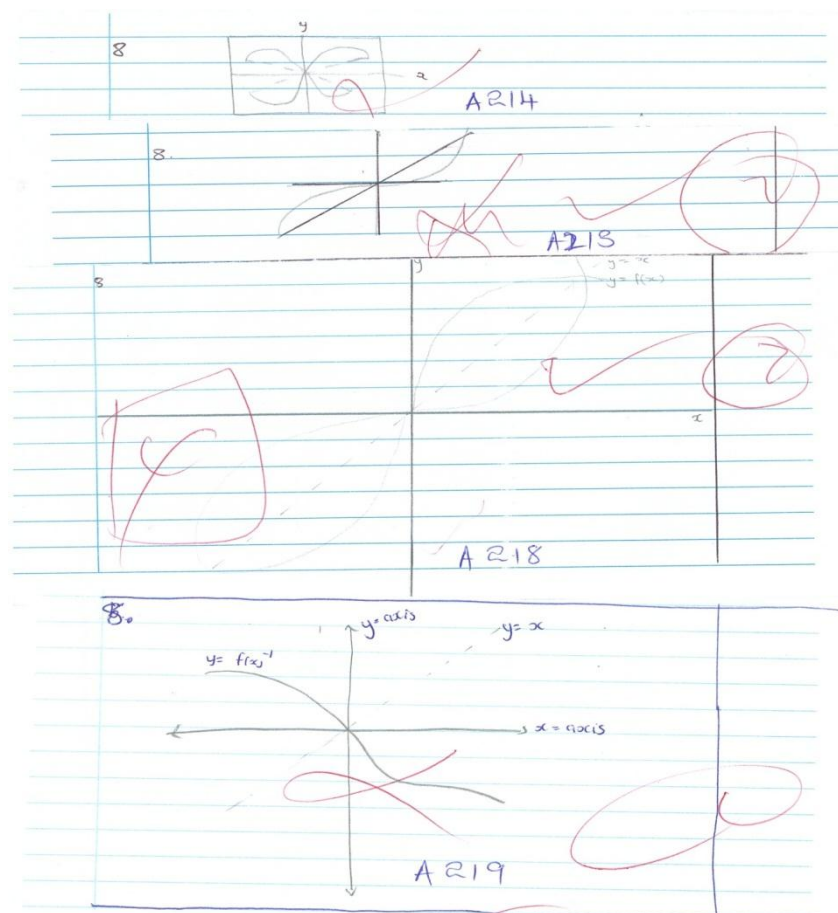 y
8
x
A214
8.
2
A21S
8
y
y = x
y = f(x)
2
x
A 218
8.
y=axis
y= x
y= f(x)⁻¹
x=axis
A 219